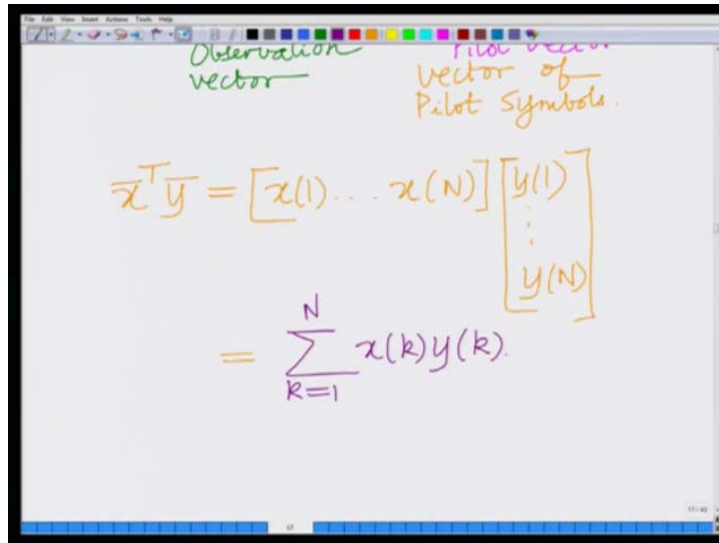 File Edit View Insert Actions Tools Help
Observation Pilot vector
vector vector of
Pilot Symbols.
x̄ᵀ ȳ = [x(1) ... x(N)] [y(1) ⋮ y(N)]
N
= ∑ x(k) y(k).
k=1
17 / 43
17